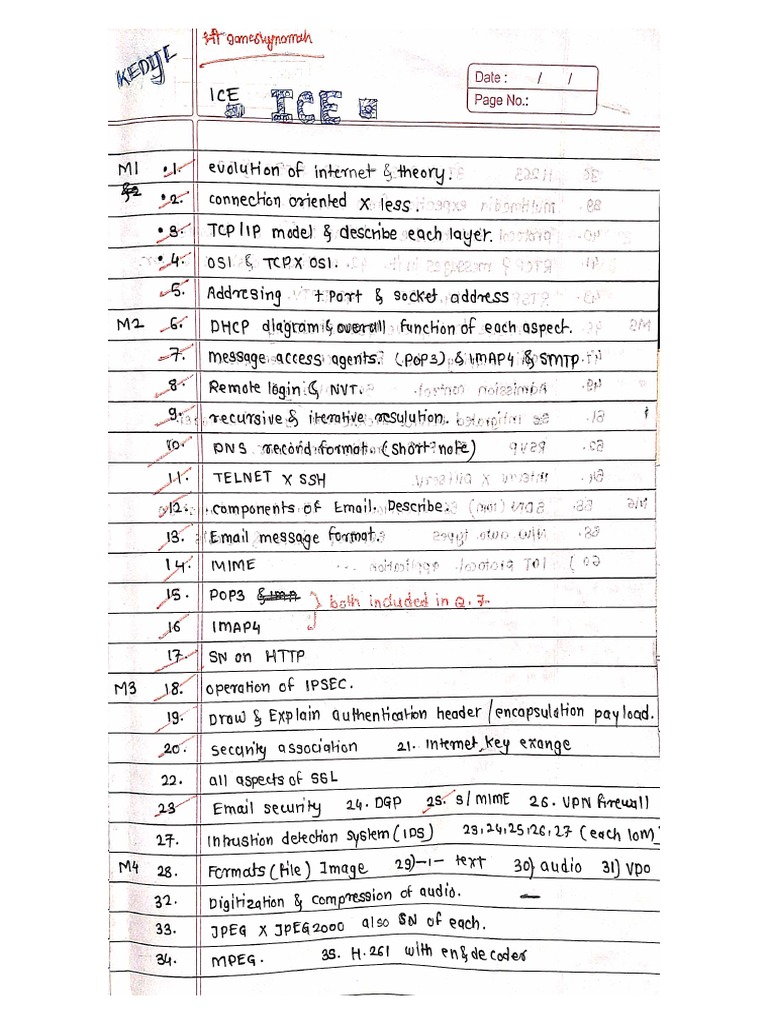 श्री Ganeshynamah
KEDIJL
Date : / /
Page No.:
ICE ICE
M1 1. evolution of internet & theory.
2. connection oriented X less.
3. TCP/IP model & describe each layer.
4. OSI & TCP X OSI.
5. Addresing + Port & socket address
M2 6. DHCP diagram & overall function of each aspect.
7. message access agents. (POP3) & IMAP4 & SMTP.
8. Remote login & NVT.
9. recursive & iterative resulution.
10. DNS record format. (short note)
11. TELNET X SSH
12. components of Email. Describe.
13. Email message format.
14. MIME
15. POP3 } both included in Q. 7.
16 IMAP4
17. SN on HTTP
M3 18. operation of IPSEC.
19. Draw & Explain authentication header / encapsulation payload.
20. security association 21. Internet key exange
22. all aspects of SSL
23 Email security 24. DGP 25. S/MIME 26. VPN firewall
27. Intrustion detection system (IDS) 23,24,25,26,27 (each 10M)
M4 28. Formats (file) Image 29)-1- text 30) audio 31) vpo
32. Digitization & compression of audio.
33. JPEG X JPEG2000 also SN of each.
34. MPEG. 35. H.261 with en & decoder